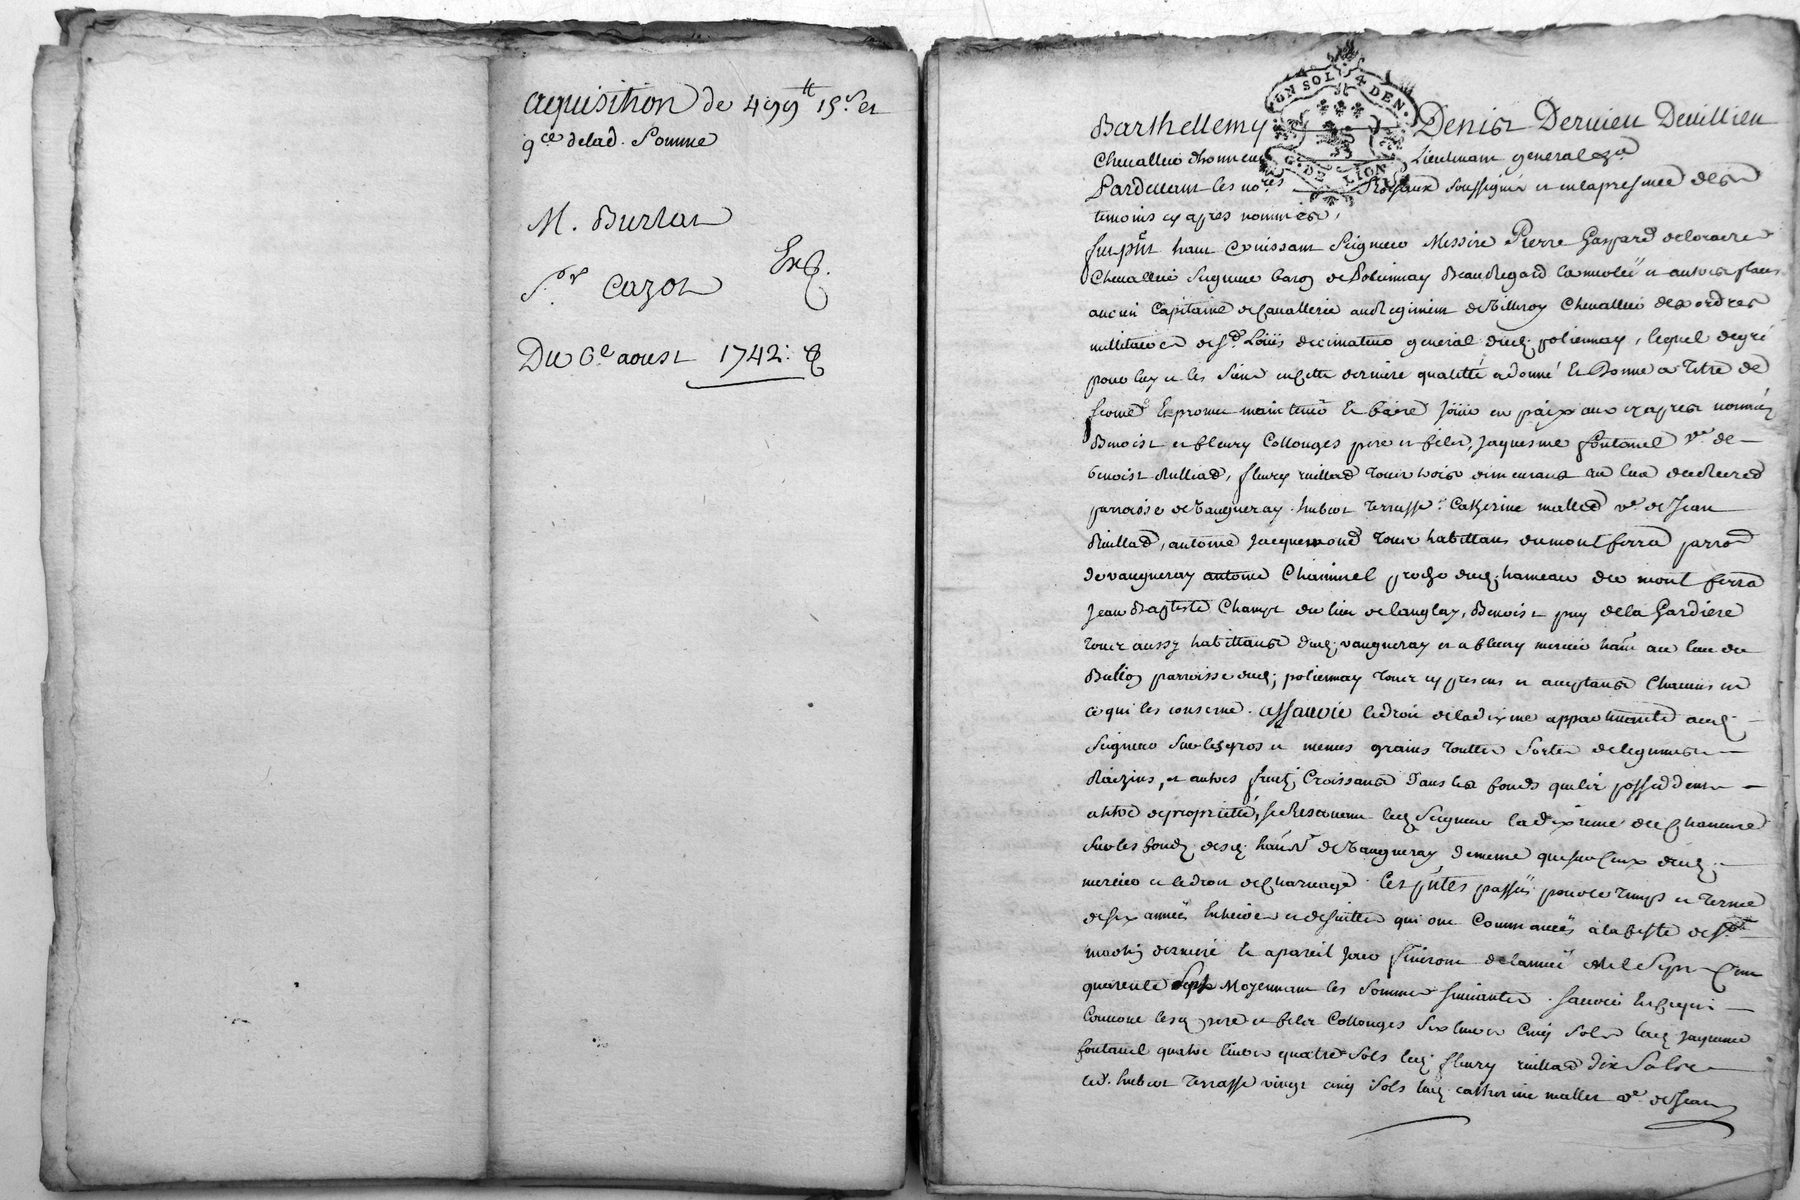 aquisition de 499tt 15s et
9ce de lad. Somme
M. Burlat
Sr. Cazot
Exp.
Du 6e aoust 1742.
UN SOL 4 DEN.
G. DE LION
Barthellemy Denis Dervieu Devillieu
Chevallier dhonneur Lieutenant general &a
Pardevant les nores Royaux soussignés et en la presence des
temoins cy apres nommés,
fut pnt haut et puissant Seigneur Messire Pierre Gaspard de
Chevallier Seigneur baron de Poliennay Beauregard et autres places
ancien Capitaine de Cavallerie au Regiment de Villeroy Chevallier des ordres
millitaires de St. Loüis decimateur general dud. poliennay, lequel de gré
pour luy et les siens en cette derniere qualitté a donné et Donne a Titre de
ferme et promet maintenir et faire joüir en paix aux cy apres nommés
Benoist et fleury Collonges pere et fils, Jaquesme fontanel ve. de
benoist Rulliad, fleury rulliad tous trois demeurans au lieu du
parroisse de Vaugneray. hubert Terrasse. Catherine mallet ve. de Jean
Rulliad, antoine Jacquemond tous habittans du mont ferra parroisse
de vaugneray antoine Chaminel proche dud. hameau du mont ferra
Jean Baptiste Champ du lieu de Langlay, Benoist puy de la Gardiere
tous aussy habittans dud. vaugneray et a fleury mercier hant au lieu du
Ballon parroisse dud. poliennay tous cy presens et acceptans Chacuns en
ce qui les conserne. assavoir le droit de la dixme appartenante aud.
Seigneur sur les gros et menus grains touttes sortes de legumes
Raizins, et autres fruits Croissans dans les fonds quils possedent
a titre de proprietté, se Reservant led. Seigneur la dixme du Chanvre
sur les fonds desd. hants de Vaugneray de meme que sur ceux dud.
mercier et le droit de charnage. Ces pntes passées pour le temps et terme
de six années entieres et de suitte qui ont Commancées a la feste de St.
martin derniere et a pareil jour finiront de lannée mil sept Cent
quarente sept Moyennant les sommes suivantes. savoir
lesd. pere et fils Collonges six livres cinq sols lad. jaquesme
fontanel quatre livres quatre sols led. fleury rulliad dix sols
led. hubert Terrasse vingt cinq sols lad. catherine mallet ve. de Jean